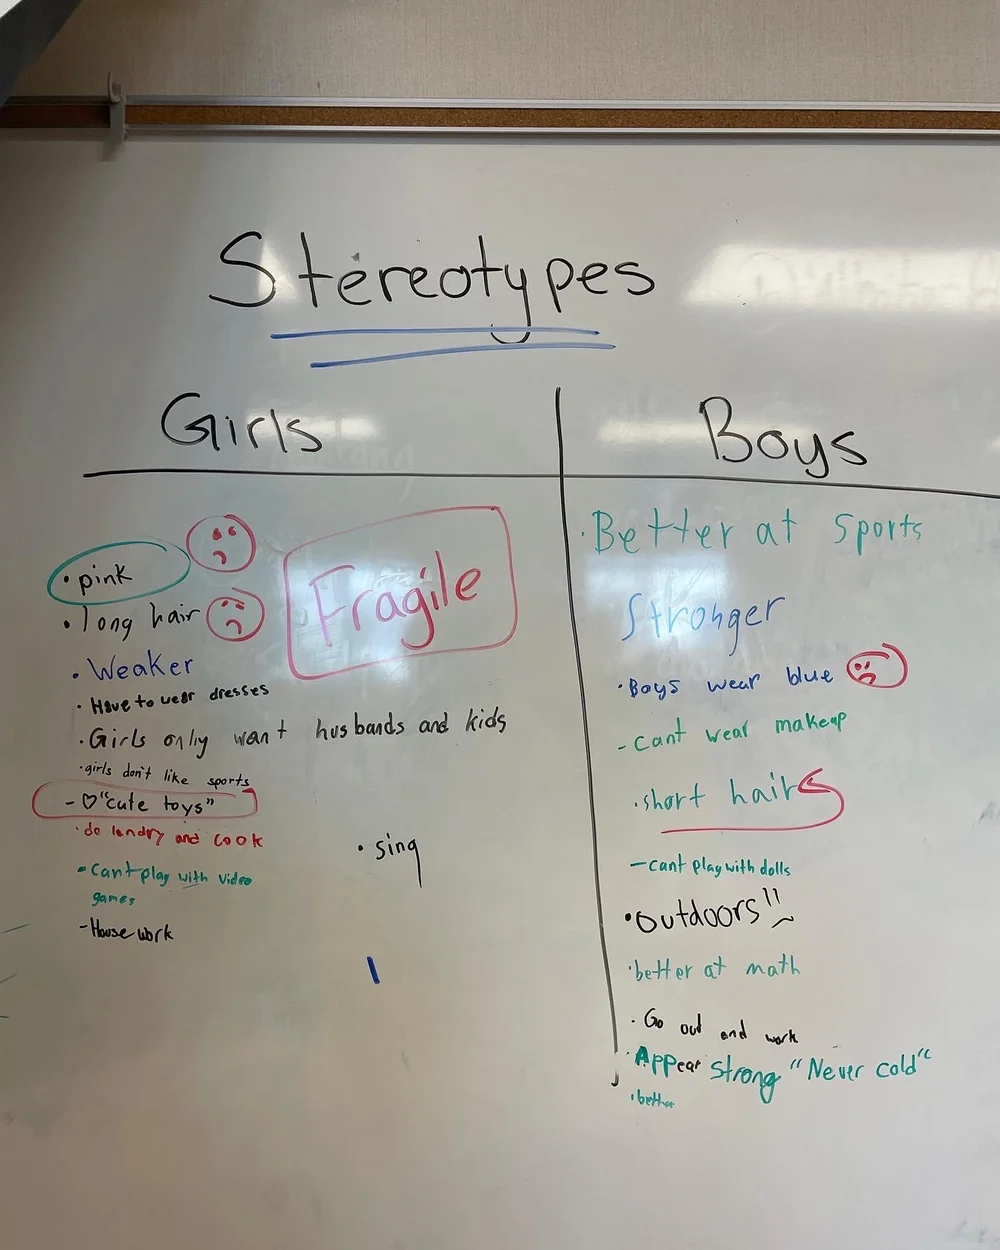 Stereotypes
Girls
Boys
• pink
• long hair
Fragile
• Weaker
• Have to wear dresses
• Girls only want husbands and kids
• girls don't like sports
- ♡ "cute toys"
• do landry and cook
- Cant play with video
games
- House work
• sing
• Better at sports
Stronger
• Boys wear blue
- cant wear makeup
• short hair
- cant play with dolls
• outdoors
• better at math
• Go out and work
• Appear strong "Never cold"
• better